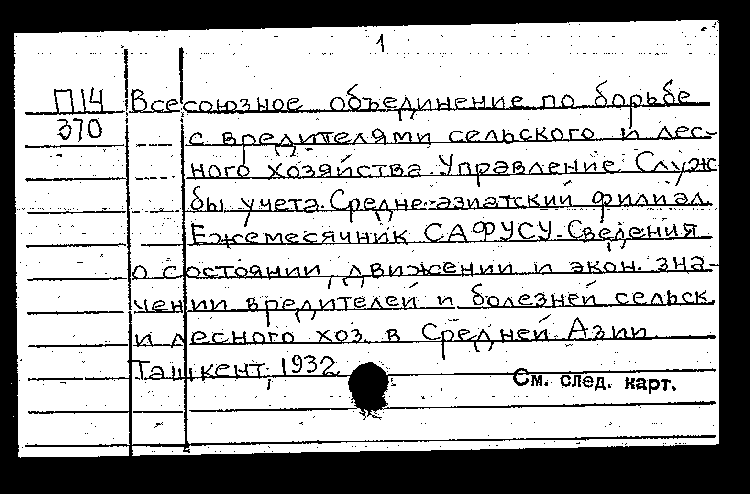 1
П14 Всесоюзное объединение по борьбе
370 с вредителями сельского и лес-
ного хозяйства. Управление Служ
бы учета. Средне-азиатский филиал.
Ежемесячник САФУСУ. Сведения
о состоянии, движении и экон. зна-
чении вредителей и болезней сельск.
и лесного хоз. в Средней Азии
Ташкент, 1932.
См. след. карт.